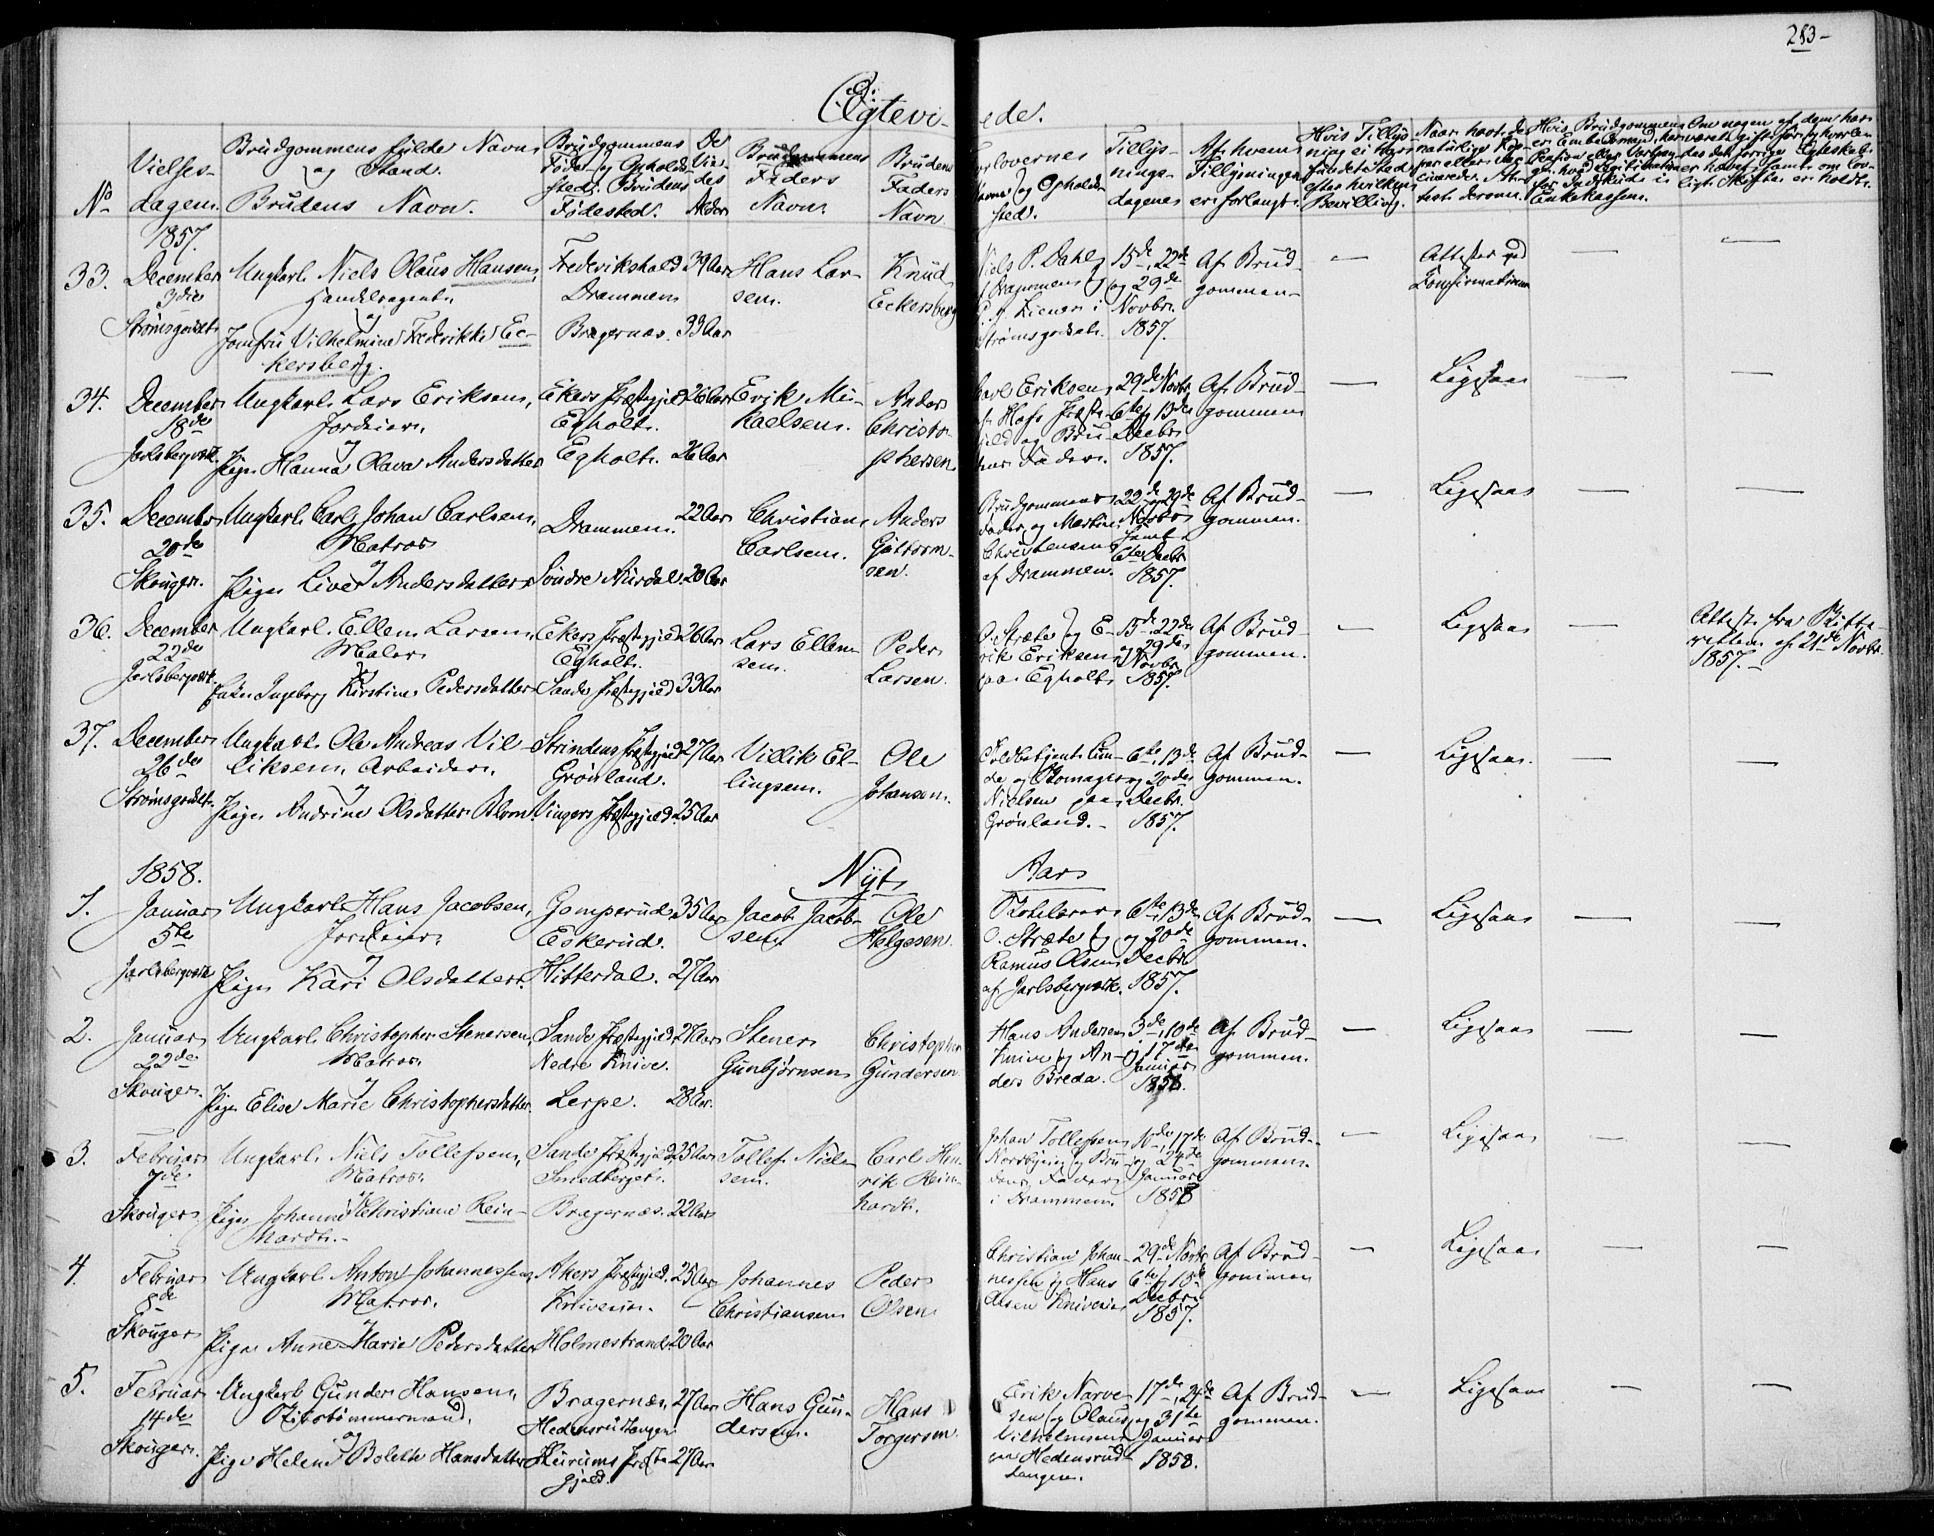 283-
Ægtevi- ede.
No
Vielses-
dagen.
Brudgommens fulde Navn
og Stand.
Brudens Navn.
Brudgommens
Føde- og Opholds-
sted. Brudens
Fødested.
De
Vie-
des
Alder
Brudgommens
Faders
Navn.
Brudens
Faders
Navn.
Forlovernes
Navne og Opholds-
sted.
Tillys-
nings-
dagene
Af hvem
Tillysningen
er forlangt.
1857.
33. December
3die
Strømsgodset.
Ungkarl Niels Olaus Hansen,
Handelsagent.
og
Jomfru Vilhelmine Frederikke Ec-
kersberg.
Frederikshald
Drammen
Bragernæs.
39 Aar
33 Aar
Hans Lar-
sen.
Knud
Eckersberg
Niels P. Dahl
af Drammen og
i
Strømsgodset.
15de, 22de
og 29de
Novbr.
1857.
Af Brud-
gommen
—
Attester ved
Confirmationen
—
—
34. December
18de
Jarlsbergværk.
Ungkarl Lars Eriksen,
Jordeier.
og
Pige Hanna Olava Andersdatter
Ekers Præstegjeld
Egholt.
Egholt.
26 Aar
26 Aar
Erik Mi-
kaelsen.
Anders
Christo-
phersen
Eriksen
af Hofs Præste-
gjeld og Bru-
dens Fader.
29de Novbr
6te, 13de
Decbr.
1857.
Af Brud-
gommen
—
Ligesaa
—
—
35. December
20de
Skouger.
Ungkarl Carl Johan Carlsen,
Matros
og
Pige Live Andersdatter
Drammen.
Søndre Aurdal.
22 Aar
20 Aar
Christian
Carlsen.
Anders
Guttorm-
sen.
Brudgommens
Fader og Martin
Christensen
af Drammen.
22de, 29de
Novbr
samt
6te Decbr.
1857.
Af Brud-
gommen.
—
Ligesaa
—
—
36. December
22de
Jarlsbergværk.
Ungkarl Ellen Larsen,
Maler
og
Enke Ingeborg Kirstine Pedersdatter
Ekers Præstegjeld
Egholt.
Sande Præstegjeld
26 Aar
33 Aar
Lars Ellen-
sen.
Peder
Larsen.
O. Stræte og E-
rik Eriksen
paa Egholt
15de, 22de
og 29de
Novbr.
1857.
Af Brud-
gommen.
—
Ligesaa
—
Attest fra Skifte-
retten af 21de Novbr.
1857.
37. December
26de
Strømsgodset.
Ungkarl Ole Andreas Vil-
liksen, Arbeider.
og
Pige Andrine Olsdatter Blom.
Strindens Præstegjeld
Grønland.
Vingers Præstegjeld.
27 Aar
25 Aar
Villik El-
lingsen.
Ole
Johansen.
Toldbetjent Lun-
de og Skomager
Nielsen paa
Grønland.
6te, 13de
og 20de
Decbr.
1857.
Af Brud-
gommen.
—
Ligesaa.
—
—
1858. Nyt Aar
1. Januar
5te
Jarlsbergværk
Ungkarl Hans Jacobsen,
Jordeier.
og
Pige Kari Olsdatter.
Gomperud
Eskerud.
Hitterdal.
35 Aar
27 Aar
Jacob Jacob-
sen.
Ole
Helgesen.
Skolelærer
O. Stræte og
Ramus Olsen
af Jarlsbergværk.
6te, 13de
og 20de
Decbr.
1857.
Af Brud-
gommen.
—
Ligesaa
—
—
2. Januar
22de
Skouger.
Ungkarl Christopher Stenersen,
Matros
og
Pige Elise Marie Christophersdatter.
Sande Præstegjeld
Nedre Knive.
Lerpe.
27 Aar
28 Aar.
Stener
Gunbjørnsen
Christopher
Gundersen.
Hans Andersen
Knive og An-
ders Breda.
3de, 10de
og 17de
Januar
1858.
Af Brud-
gommen.
—
Ligesaa
—
—
3. Februar
7de
Skouger
Ungkarl Niels Tollefsen,
Matros.
og
Pige Johanne Christiane Rein-
hardt.
Sande Præstegjeld
Smedberget.
Bragernæs.
25 Aar
22 Aar
Tollef Niel-
sen.
Carl Hen-
rik Rein-
hardt.
Johan Tollefsen
og Bru-
dens Fader
i Drammen.
10de, 17de
og 24de
Januar
1858
Af Brud-
gommen.
—
Ligesaa
—
—
4. Februar
8de
Skouger
Ungkarl Anton Johannessen,
Matros.
og
Pige Anne Marie Pedersdatter
Akers Præstegjeld.
Holmestrand
25 Aar
20 Aar
Johannes
Christiansen
Peder
Olsen
Christian Johan-
nessen og Hans
Olsen
29de Novbr
6te, 13de
Decbr.
1857.
Af Brud-
gommen
—
Ligesaa
—
—
5. Februar
14de
Skouger.
Ungkarl Gunder Hansen,
Skibstømmermand,
og
Pige Helene Bolette Hansdatter
Bragernæs
Hedensrudtangen
Hurums Præste
gjeld.
27 Aar
27 Aar
Hans Gun-
dersen.
Hans
Torgersen
Erik Narve-
sen og Olaus
Vilhelmsen
paa Hedensrud-
tangen.
17de, 24de
og 31te
Januar
1858.
Af Brud-
gommen.
—
Ligesaa
—
—